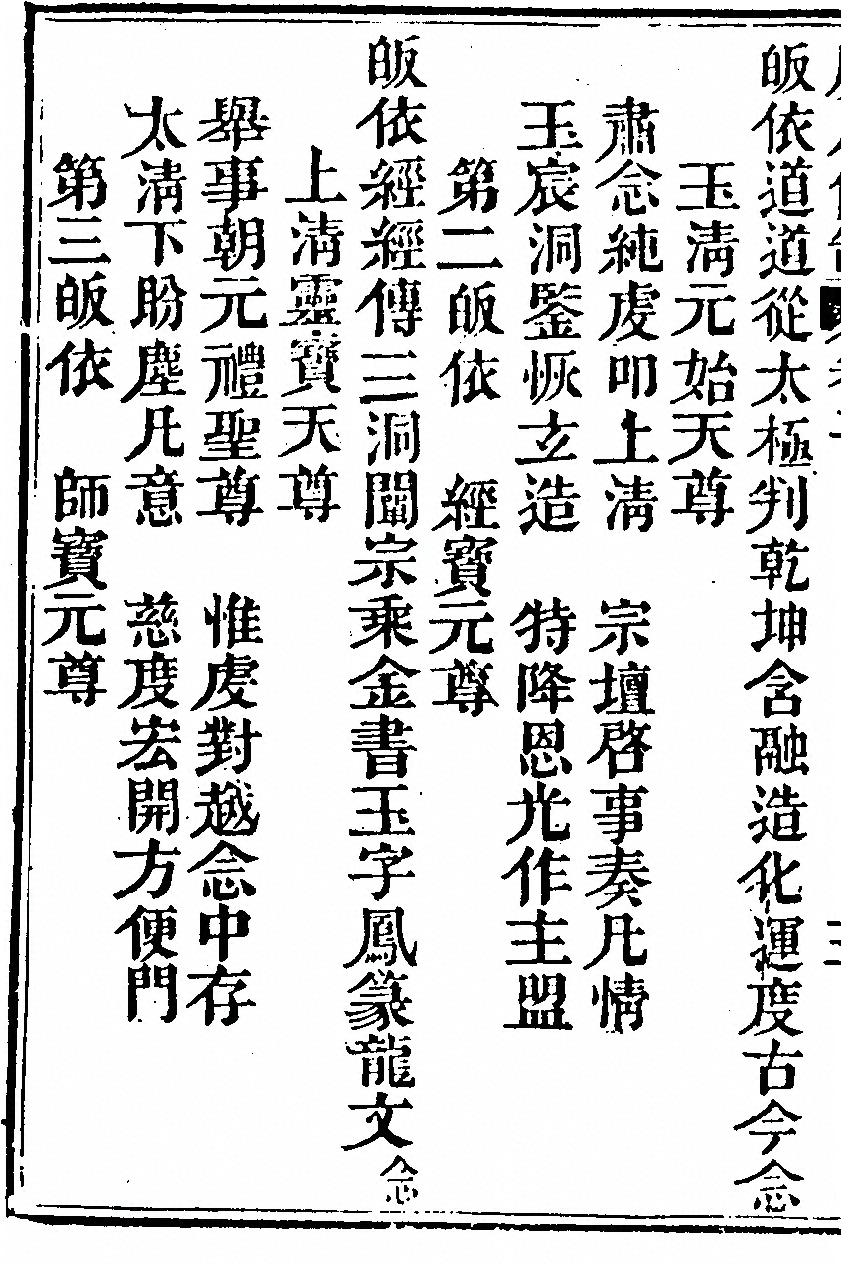 皈依道道從太極判乾坤含融造化運度古今念
玉淸元始天尊
肅念純虔叩上淸　宗壇啓事奏凡情
玉宸洞鑒恢玄造　特降恩光作主盟
第二皈依　經寶元尊
皈依經經傳三洞闡宗乘金書玉字鳳篆龍文念
上淸靈寶天尊
舉事朝元禮聖尊　惟虔對越念中存
太淸下盼塵凡意　慈度宏開方便門
第三皈依　師寶元尊